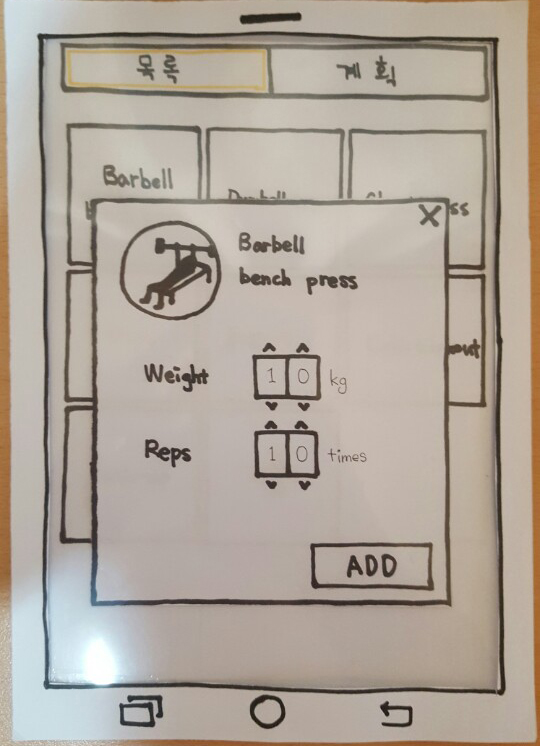 목록
계획
Barbell
ss
Barbell
bench press
X
Weight
10 kg
Reps
10 times
ADD